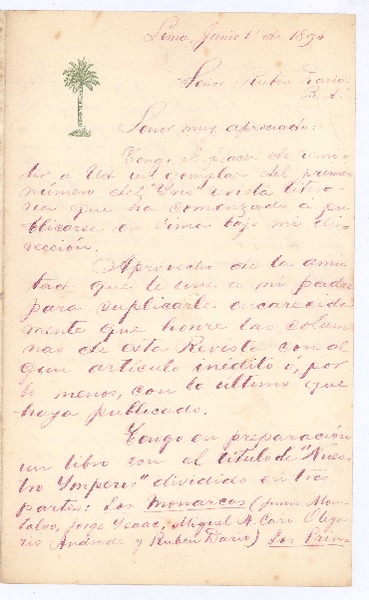 Lima, Junio 1º de 1894
Señor Ruben Dario.
B. A.
Señor muy apreciado:
Tengo el placer de remi-
tir á Ud un ejemplar del primer
número del "Iris" revista litera-
ria que ha comenzado á pu-
blicarse en Lima bajo mi di-
rección.
Aprovecho de la amis-
tad que le une a mi padre
para suplicarle encarecida
mente que honre las colum-
nas de esta Revista con al
gun articulo inédito ó, por
lo menos, con lo ultimo que
haya publicado.
Tengo en preparación
un libro con el titulo de "Nues-
tro Imperio" dividido en tres
partes: Los Monarcas (Juan Mon-
talvo, Jorge Isaac, Miguel A. Caro Olega-
rio Andrade y Ruben Dario) Los Prín-